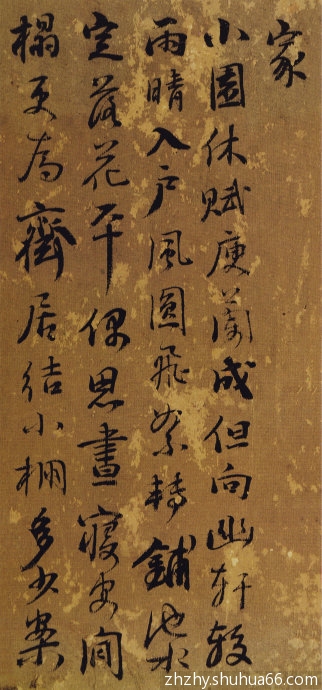 家
小園休賦庾蘭成但向幽軒較
雨晴入戶風圓飛絮轉鋪池水
定落花平偶思晝寢安閒
榻更為齋居結小棚多少案
zhzhy.shuhua66.com